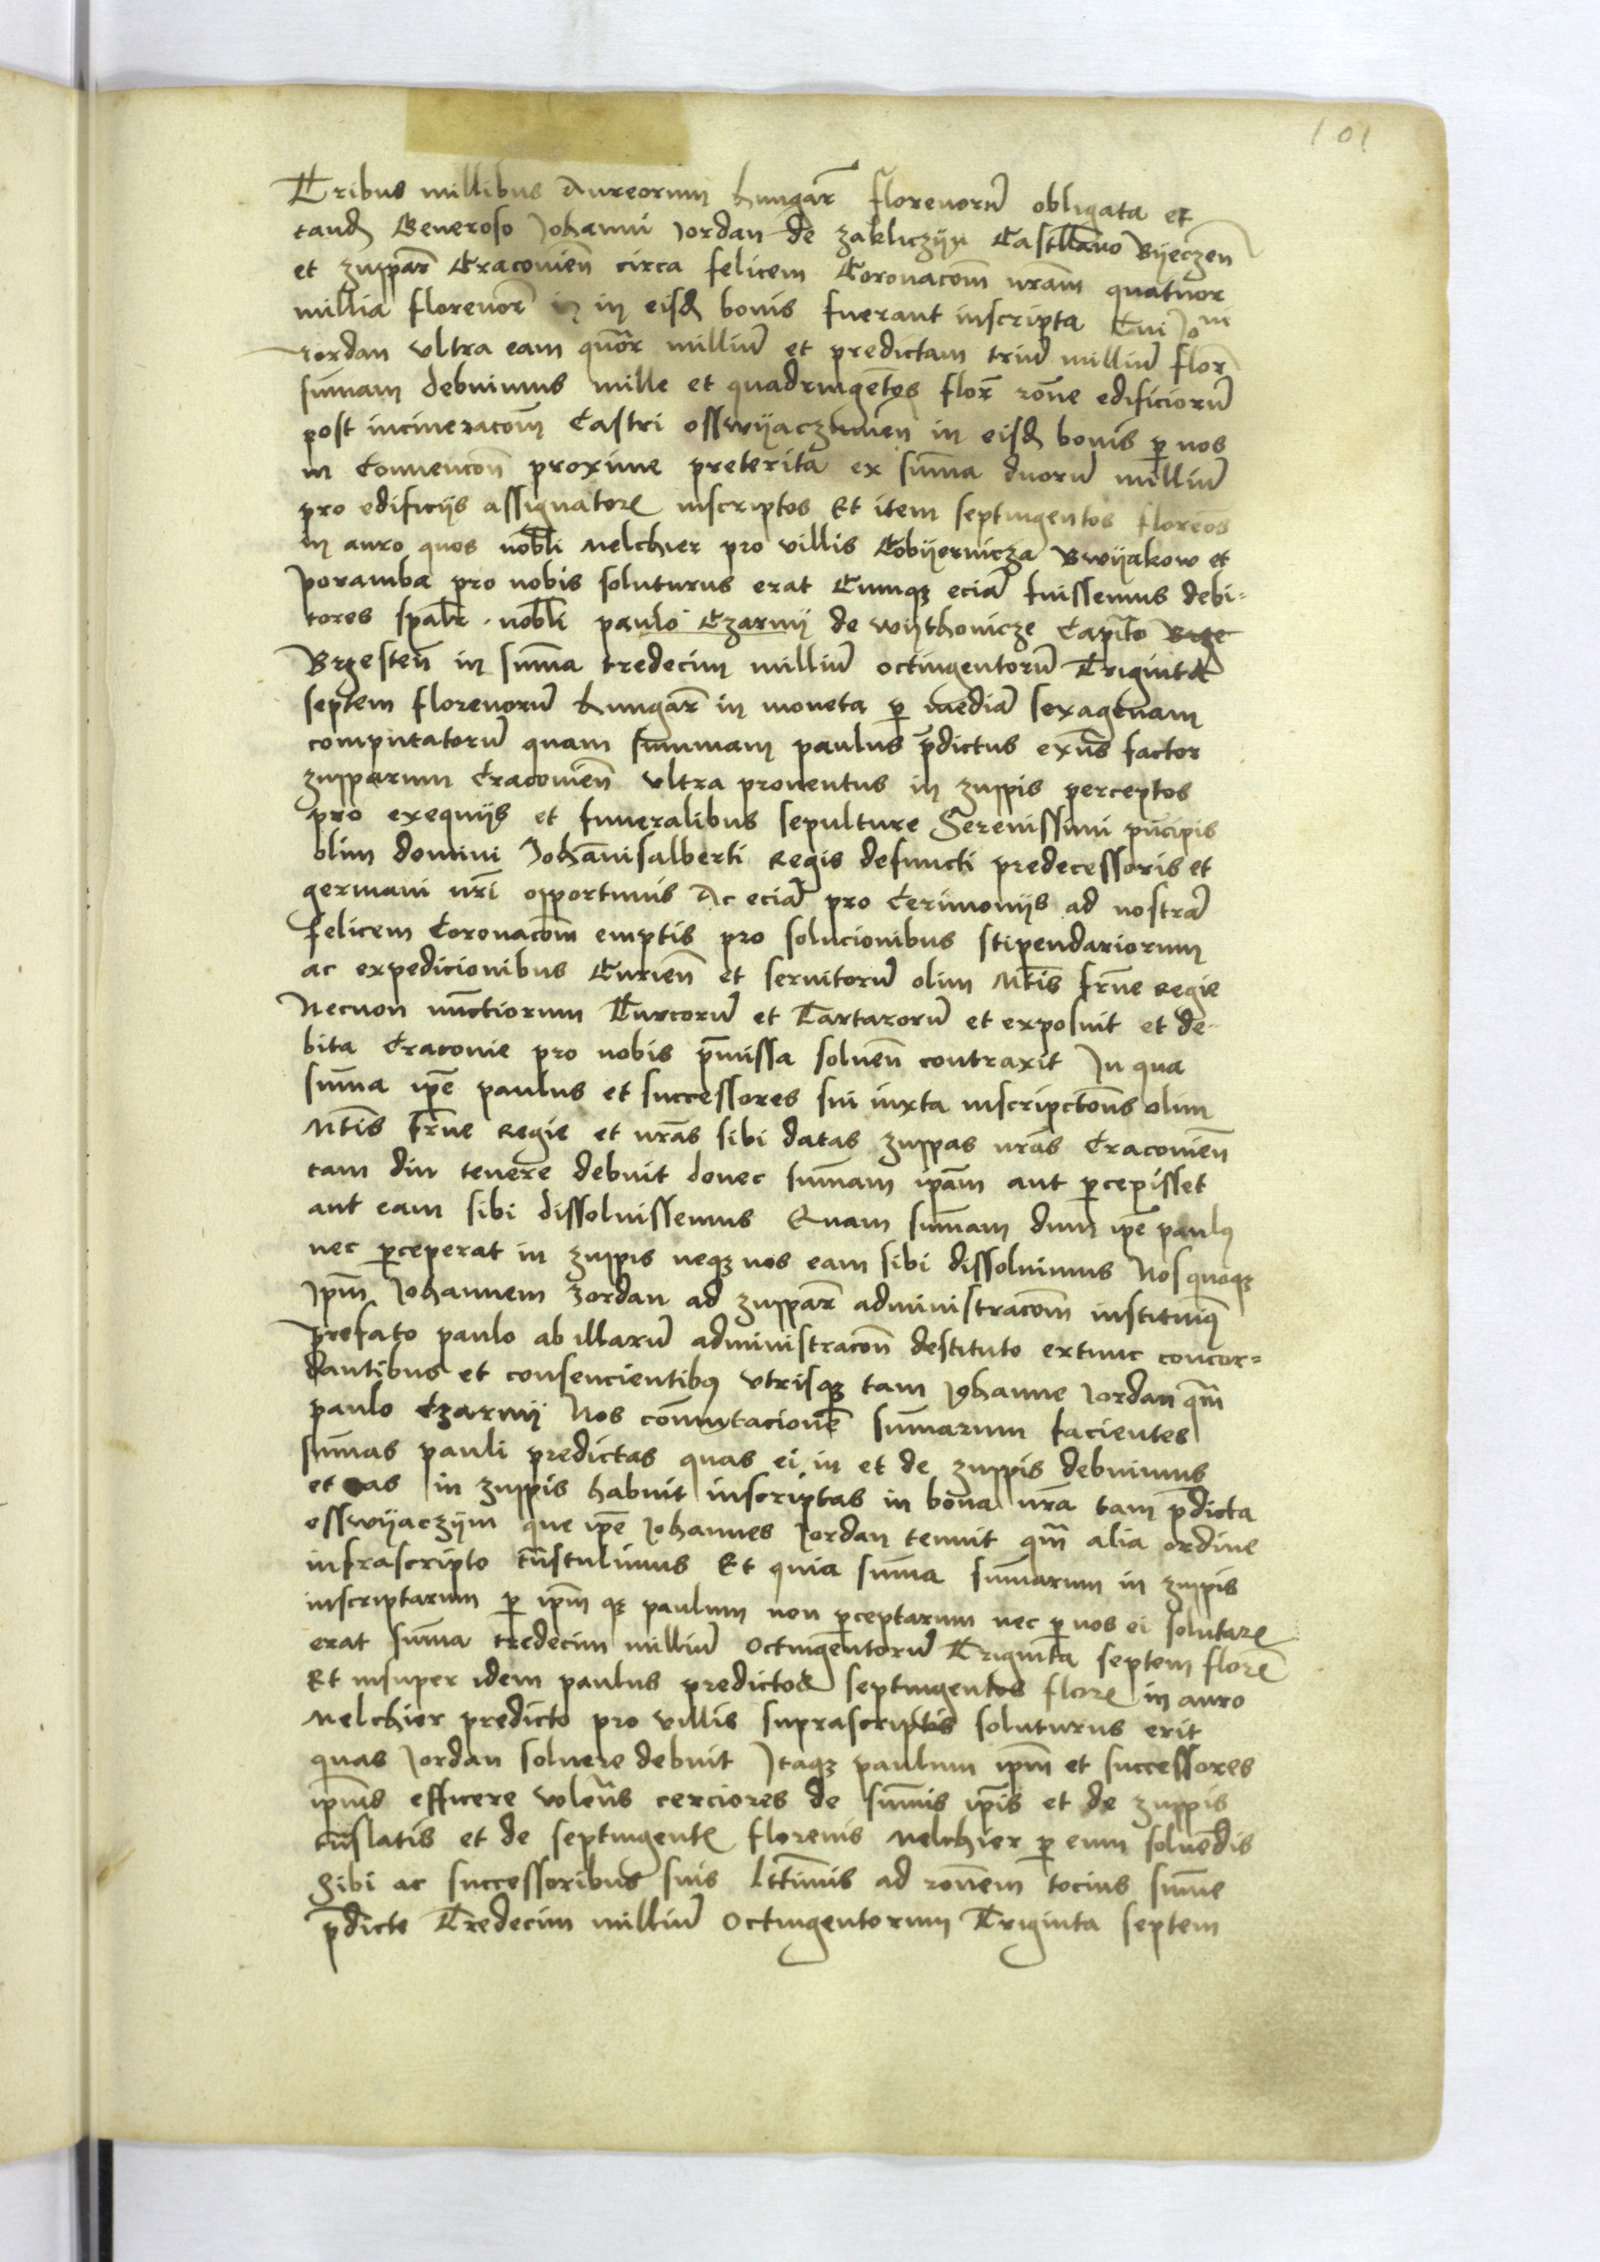 101
Tribus millibus Aureorum hungar florenorũ obligata et
tand Generoso Johanni Jordan de zakliczyn Castllano Byeczen
et zuppar Cracovien circa felicem Coronacom nram quatuor
millia florenor in eisd bonis fuerant inscripta Cui Jo
Jordan ultra eam quor milliũ et predictam triũ milliũ flor
summam debuimus mille et quadringetos flor rone edificiorũ
post incineracom Castri osswyaczimen in eisd bonis p nos
in Convencon proxime preterita ex summa duorũ milliũ
pro edificijs assignator inscriptos Et item septingentos florenos
in auro quos nobli Melchier pro villis Cobyernicza Bwyakow et
poramba pro nobis soluturus erat Cumqz eciã fuissemus debi-
tores spalr nobli paulo Czarny de wythovicze Capito Brze
Brzesten in summa tredecim milliũ octingentorũ Triginta
septem florenorũ hungar in moneta p mediã sexagenam
computatorũ quam summam paulus pdictus exns factor
zupparum Cracovien ultra proventus in zuppis perceptos
pro exequijs et funeralibus sepulture Serenissimi principis
olim domini Johannisalberti Regis defuncti predecessoris et
germani nri opportunis Ac eciã pro Cerimonijs ad nostrã
felicem Coronacom emptis pro solucionibus stipendariorum
ac expedicionibus Curien et servitorũ olim Mtis frne Regie
Necnon nunctiorum Turcorũ et Tartarorũ et exposuit et de-
bita Cracovie pro nobis pmissa solven contraxit In qua
summa ipe paulus et successores sui iuxta inscripctons olim
Mtis frne Regie et nras sibi datas zuppas nras Cracovien
tam diu tenere debuit donec summam ipam aut pcepisset
aut eam sibi dissoluissemus Quam summam dum ipe paulus
nec pceperat in zuppis neqz nos eam sibi dissoluimus Nos quoqz
Ipm Johannem Jordan ad zuppar administracom instituimus
prefato paulo ab illarũ administracon destituto extunc concor-
dantibus et consencientibus utrisqz tam Johanne Jordan qm
paulo Czarny Nos commutacione summarum facientes
summas pauli predictas quas ei in et de zuppis debuimus
et eas in zuppis habuit inscriptas in bona nra tam pdicta
osswyaczym que ipe Johannes Jordan tenuit qm alia ordine
infrascripto tnstulimus Et quia summa summarum in zuppis
inscriptarum p ipm qz paulum non pceptarum nec p nos ei solutar
erat summa tredecim milliũ octingentorũ Triginta septem floren
Et insuper idem paulus predictos septingentos floren in auro
Melchier predicto pro villis suprascriptis soluturus erit
quas Jordan solvere debuit Itaqz paulum ipm et successores
ipius efficere volens cerciores de summis ipis et de zuppis
tnslatis et de septingent florenis Melchier p eum solvedis
Sibi ac successoribus suis lttimis ad ronem tocius summe
pdicte Tredecim milliũ octingentorum Triginta septem